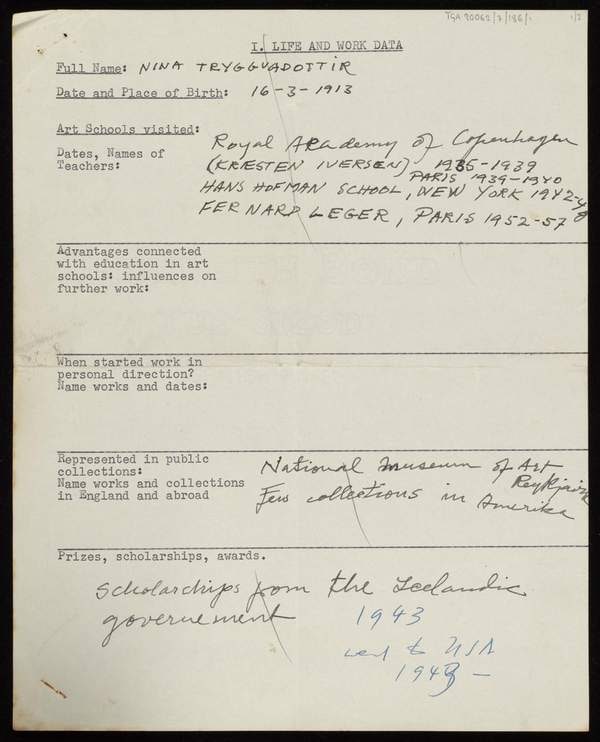 TGA 20062/3/186/1
1/2
I. LIFE AND WORK DATA
Full Name: NINA TRYGGVADOTTIR
Date and Place of Birth: 16-3-1913
Art Schools visited:
Dates, Names of
Teachers:
Royal Academy of Copenhagen
(KRÆSTEN IVERSEN) 1935-1939
PARIS 1939-1940
HANS HOFMAN SCHOOL, NEW YORK 1942-48
FERNARD LEGER, PARIS 1952-57
Advantages connected
with education in art
schools: influences on
further work:
When started work in
personal direction?
Name works and dates:
Represented in public
collections:
Name works and collections
in England and abroad
National Museum of Art
Reykjavik
Few collections in Amerika
Prizes, scholarships, awards.
Scholarchips from the Icelandic
governement 1943
went to USA
1943 -